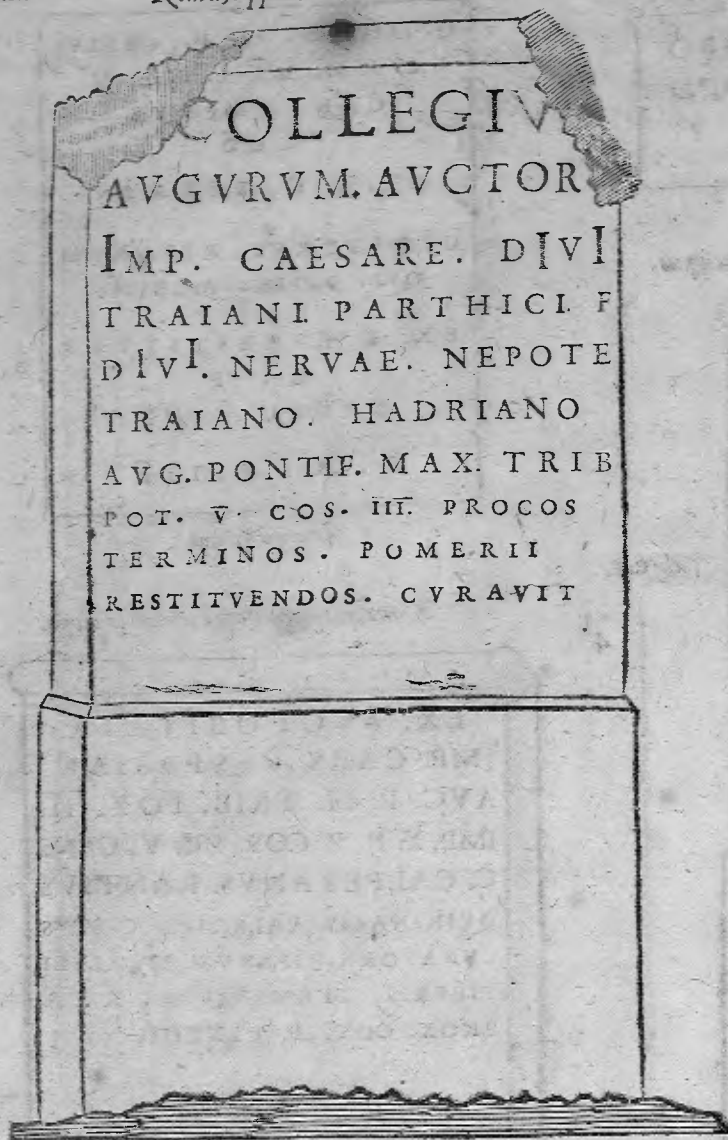 COLLEGIV
AVGVRVM. AVCTOR
IMP. CAESARE. DIVI
TRAIANI. PARTHICI. F
DIVI. NERVAE. NEPOTE
TRAIANO. HADRIANO
AVG. PONTIF. MAX. TRIB
POT. V̅. COS. III̅. PROCOS
TERMINOS. POMERII
RESTITVENDOS. CVRAVIT